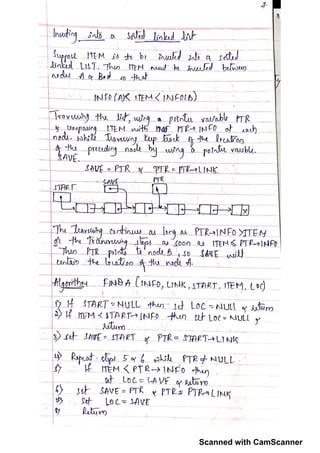 Inserting into a sorted linked list
Suppose ITEM is to be inserted into a sorted
linked LIST. Then ITEM must be inserted between
nodes A & B so that
INFO(A) < ITEM < INFO(B)
Traversing the list, using a pointer variable PTR
& comparing ITEM with PTR→INFO at each
node. While Traversing keep track of the location
of the preceding node by using a pointer variable.
SAVE.
SAVE = PTR & PTR = PTR→LINK
START SAVE PTR
X
The Traversing continues as long as PTR→INFO > ITEM
or the Traversing stops as soon as ITEM ≤ PTR→INFO
Then PTR points to node B, so SAVE will
contain the location of the node A.
Algorithm FINDA (INFO, LINK, START, ITEM, LOC)
1) If START = NULL then: set LOC = NULL & return
2) If ITEM < START→INFO then set LOC = NULL &
return
3) set SAVE = START & PTR = START→LINK
4) Repeat steps 5 & 6 while PTR ≠ NULL
5) If ITEM < PTR→INFO then
set LOC = SAVE & return
6) set SAVE = PTR & PTR = PTR→LINK
7) Set LOC = SAVE
8) Return
Scanned with CamScanner